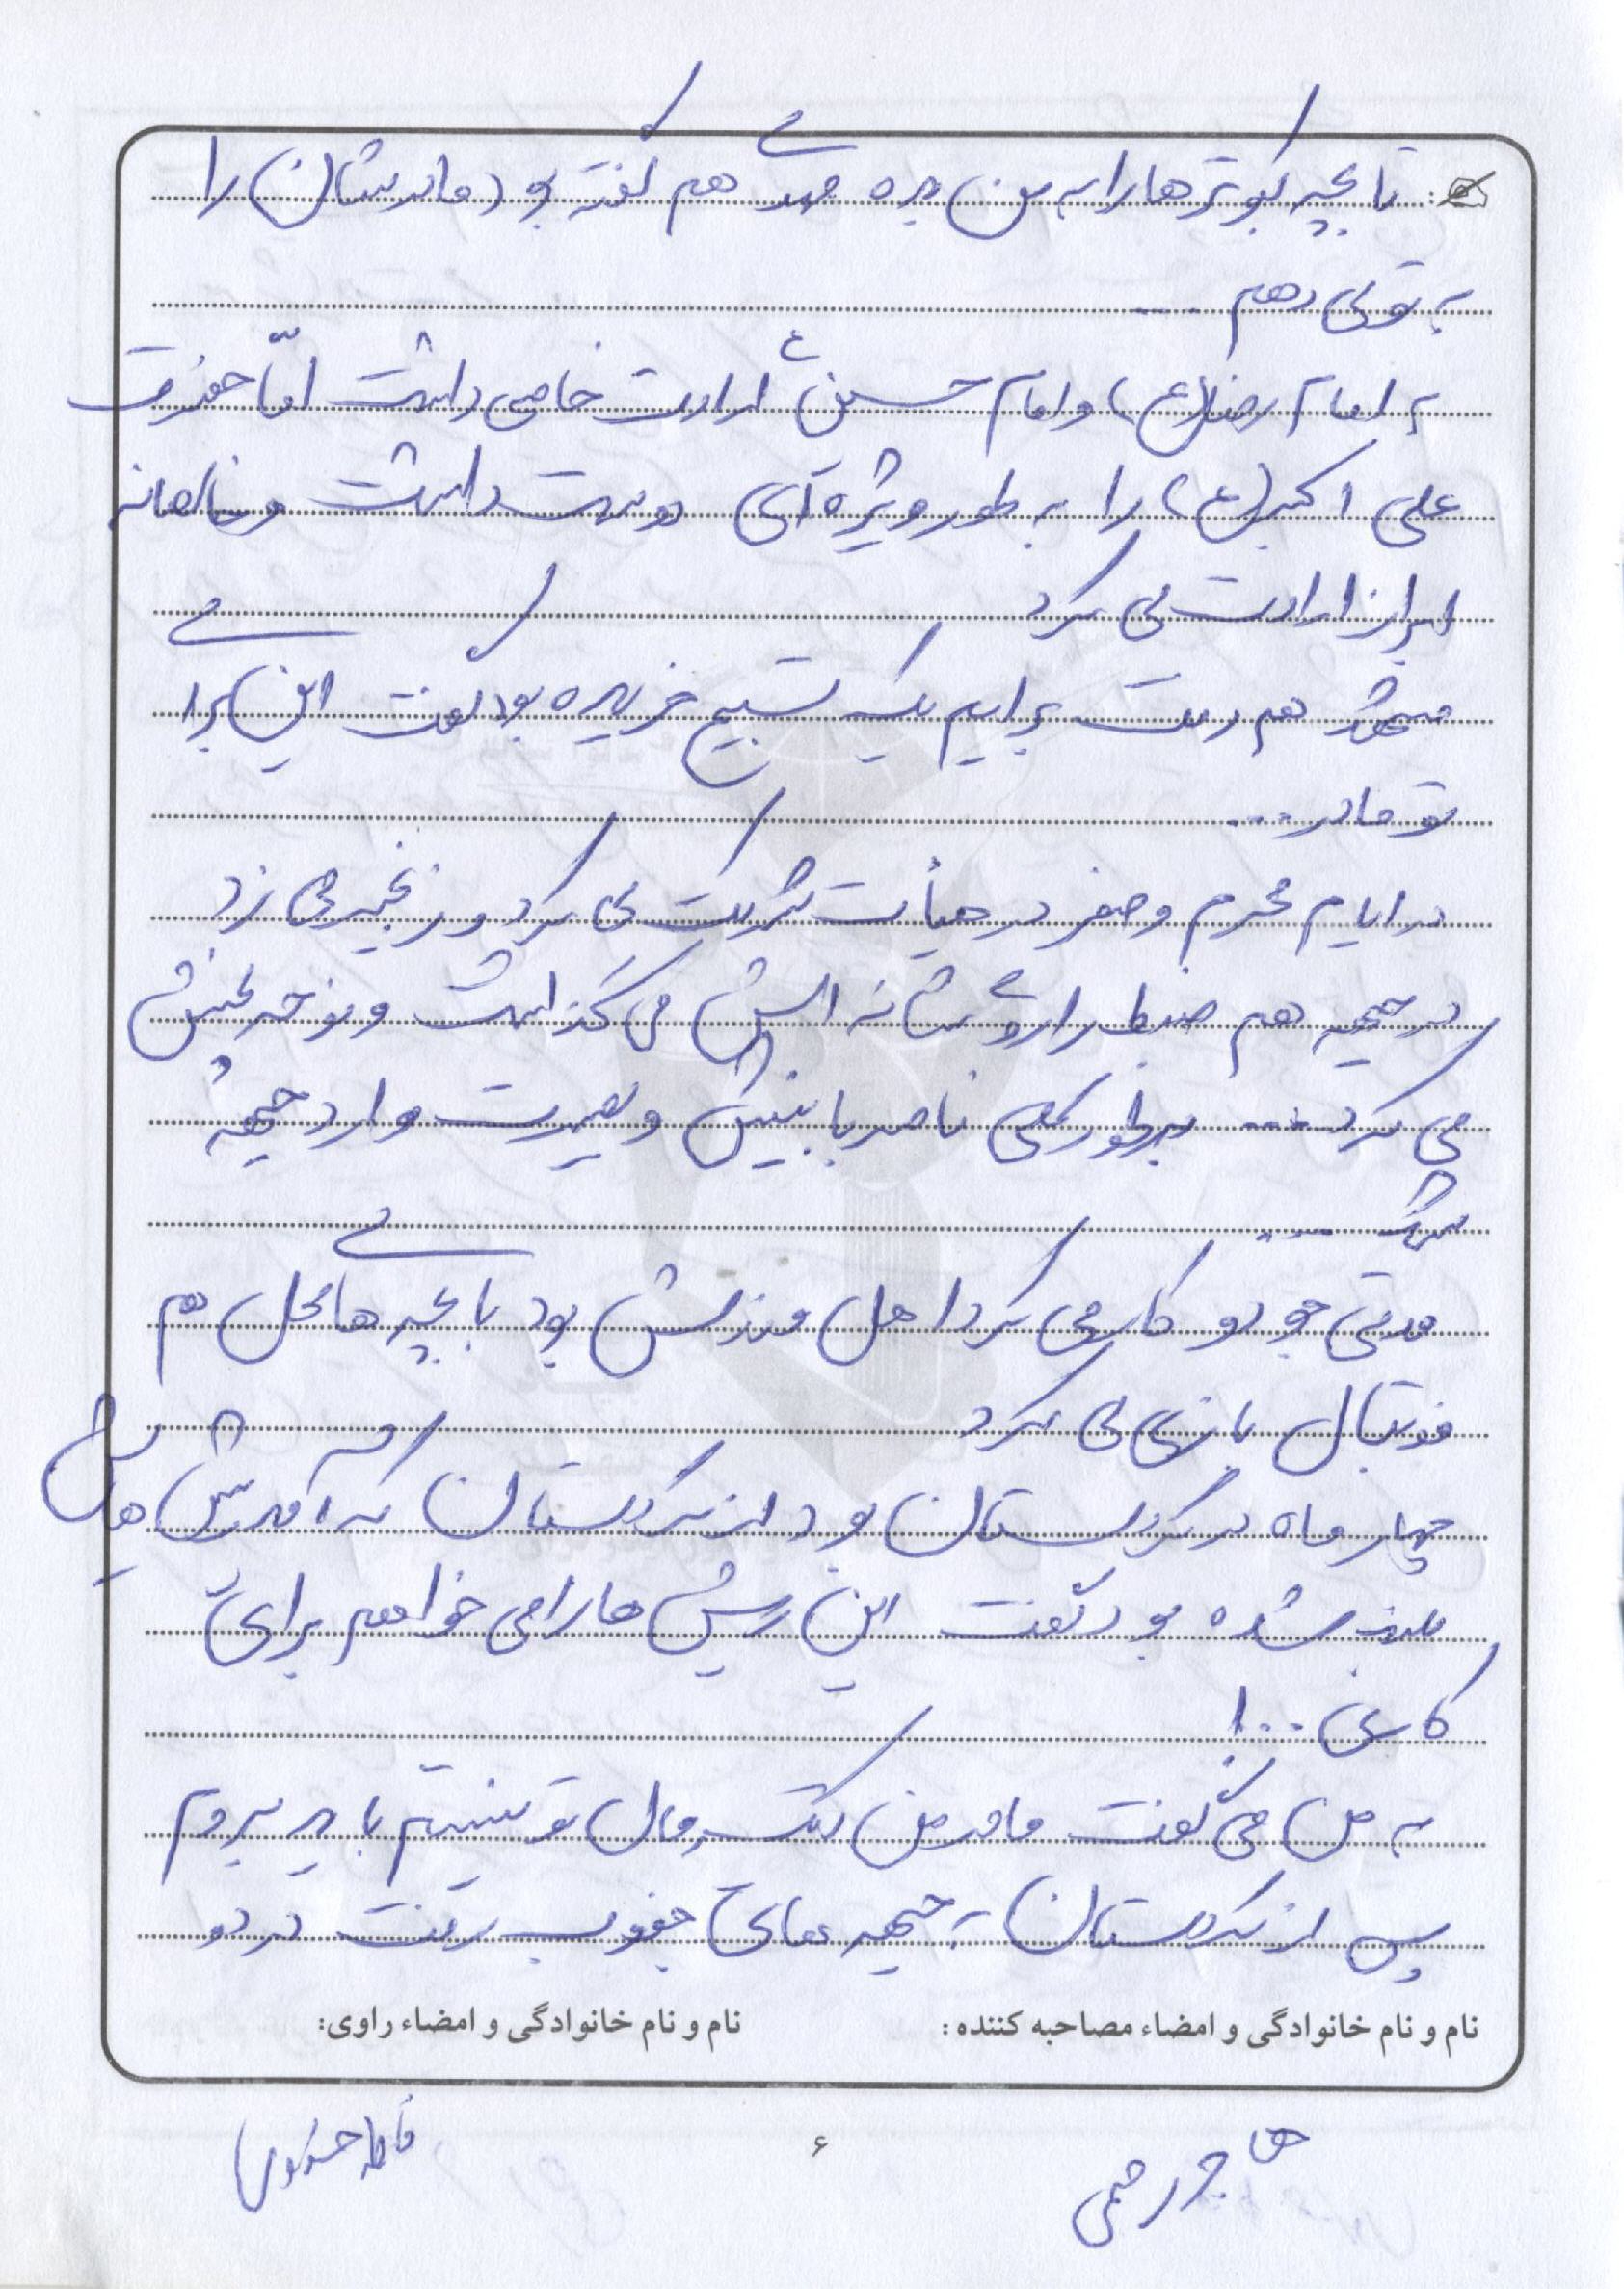 تا بچه کبوترها را به من بده مهدی هم گفته بود مادرشان را
به تو می دهم ...
به امام رضا(ع) و امام حسین ع ارادت خاصی داشت امّا حضرت
علی اکبر(ع) را به طور ویژه ای دوست داشت و خالصانه
ابراز ارادت می کرد
مشهد هم رفت برایم یک تسبیح خریده بود گفت این برای
تو مادر ...
در ایام محرم و صفر در هیأت شرکت می کرد و زنجیر می زد
در جبهه هم ضبط را روی شانه اش می گذاشت و نوحه پخش
می کرد ... بطور کلی ناصر با بینش و بصیرت وارد جبهه
شد ...
مدتی جودو کار می کرد اهل ورزش بود با بچه های محل هم
فوتبال بازی می کرد
چهار ماه در کردستان بود از کردستان که آمد ریش هایش
بلند شده بود گفت این ریش ها را می خواهم برای
کاری ..!
به من می گفت مادر من دیگر مال تو نیستم باید بروم
پس از کردستان به جبهه های جنوب رفت در دو
نام و نام خانوادگی و امضاء مصاحبه کننده :
نام و نام خانوادگی و امضاء راوی:
هاجر رحمی
فاطمه
۶